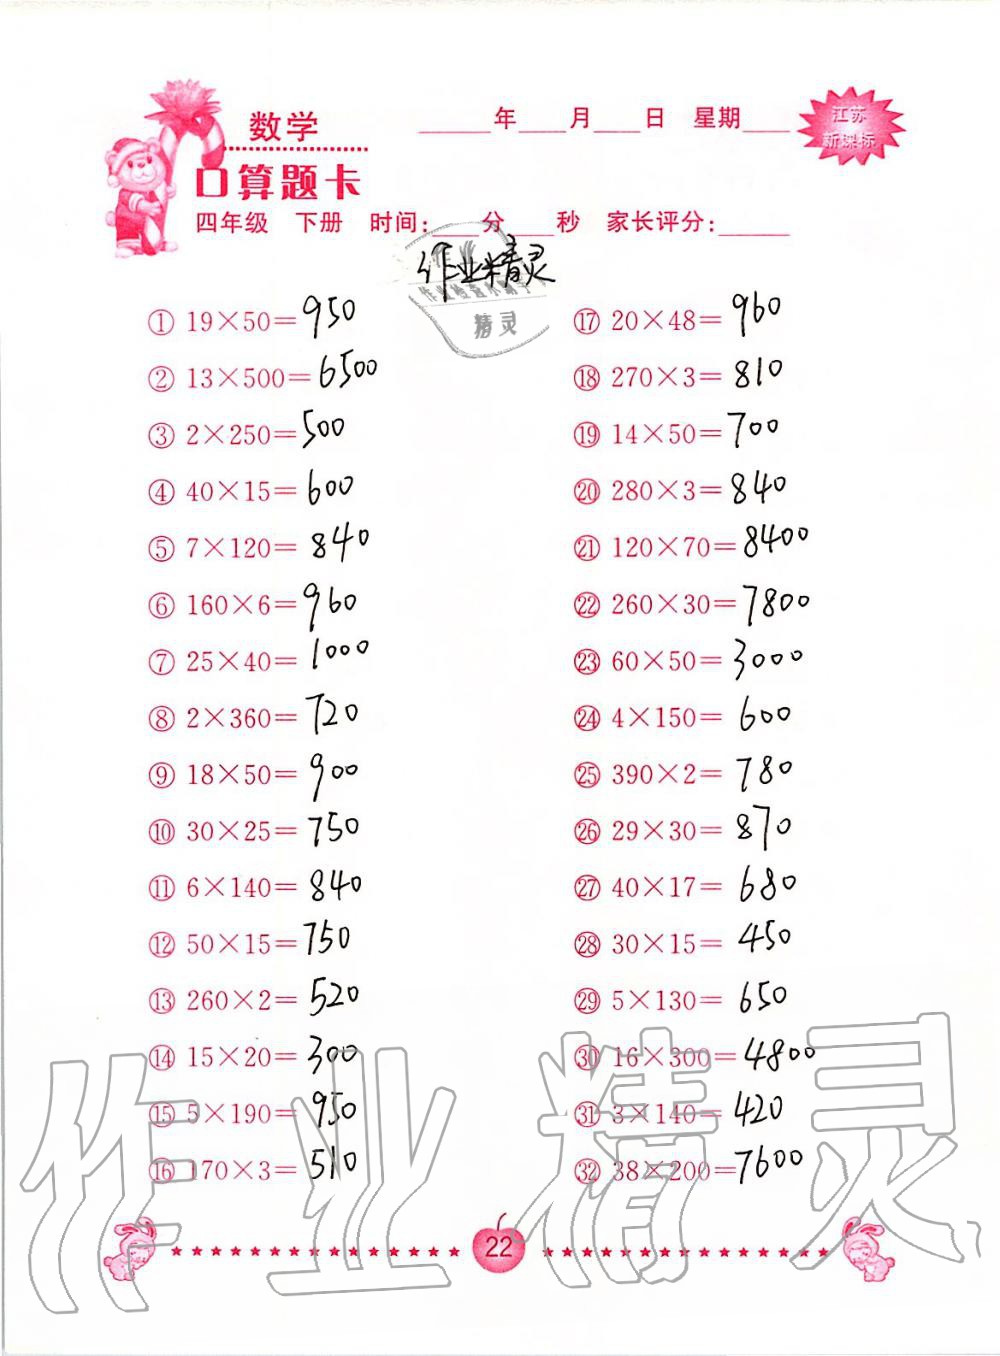 数学 ____年____月____日 星期____
江苏
新课标
口算题卡
四年级 下册 时间:____分____秒 家长评分:______
作业精灵
精灵
① 19×50=950
② 13×500=6500
③ 2×250=500
④ 40×15=600
⑤ 7×120=840
⑥ 160×6=960
⑦ 25×40=1000
⑧ 2×360=720
⑨ 18×50=900
⑩ 30×25=750
⑪ 6×140=840
⑫ 50×15=750
⑬ 260×2=520
⑭ 15×20=300
⑮ 5×190=950
⑯ 170×3=510
⑰ 20×48=960
⑱ 270×3=810
⑲ 14×50=700
⑳ 280×3=840
㉑ 120×70=8400
㉒ 260×30=7800
㉓ 60×50=3000
㉔ 4×150=600
㉕ 390×2=780
㉖ 29×30=870
㉗ 40×17=680
㉘ 30×15=450
㉙ 5×130=650
㉚ 16×300=4800
㉛ 3×140=420
㉜ 38×200=7600
作业精灵
22